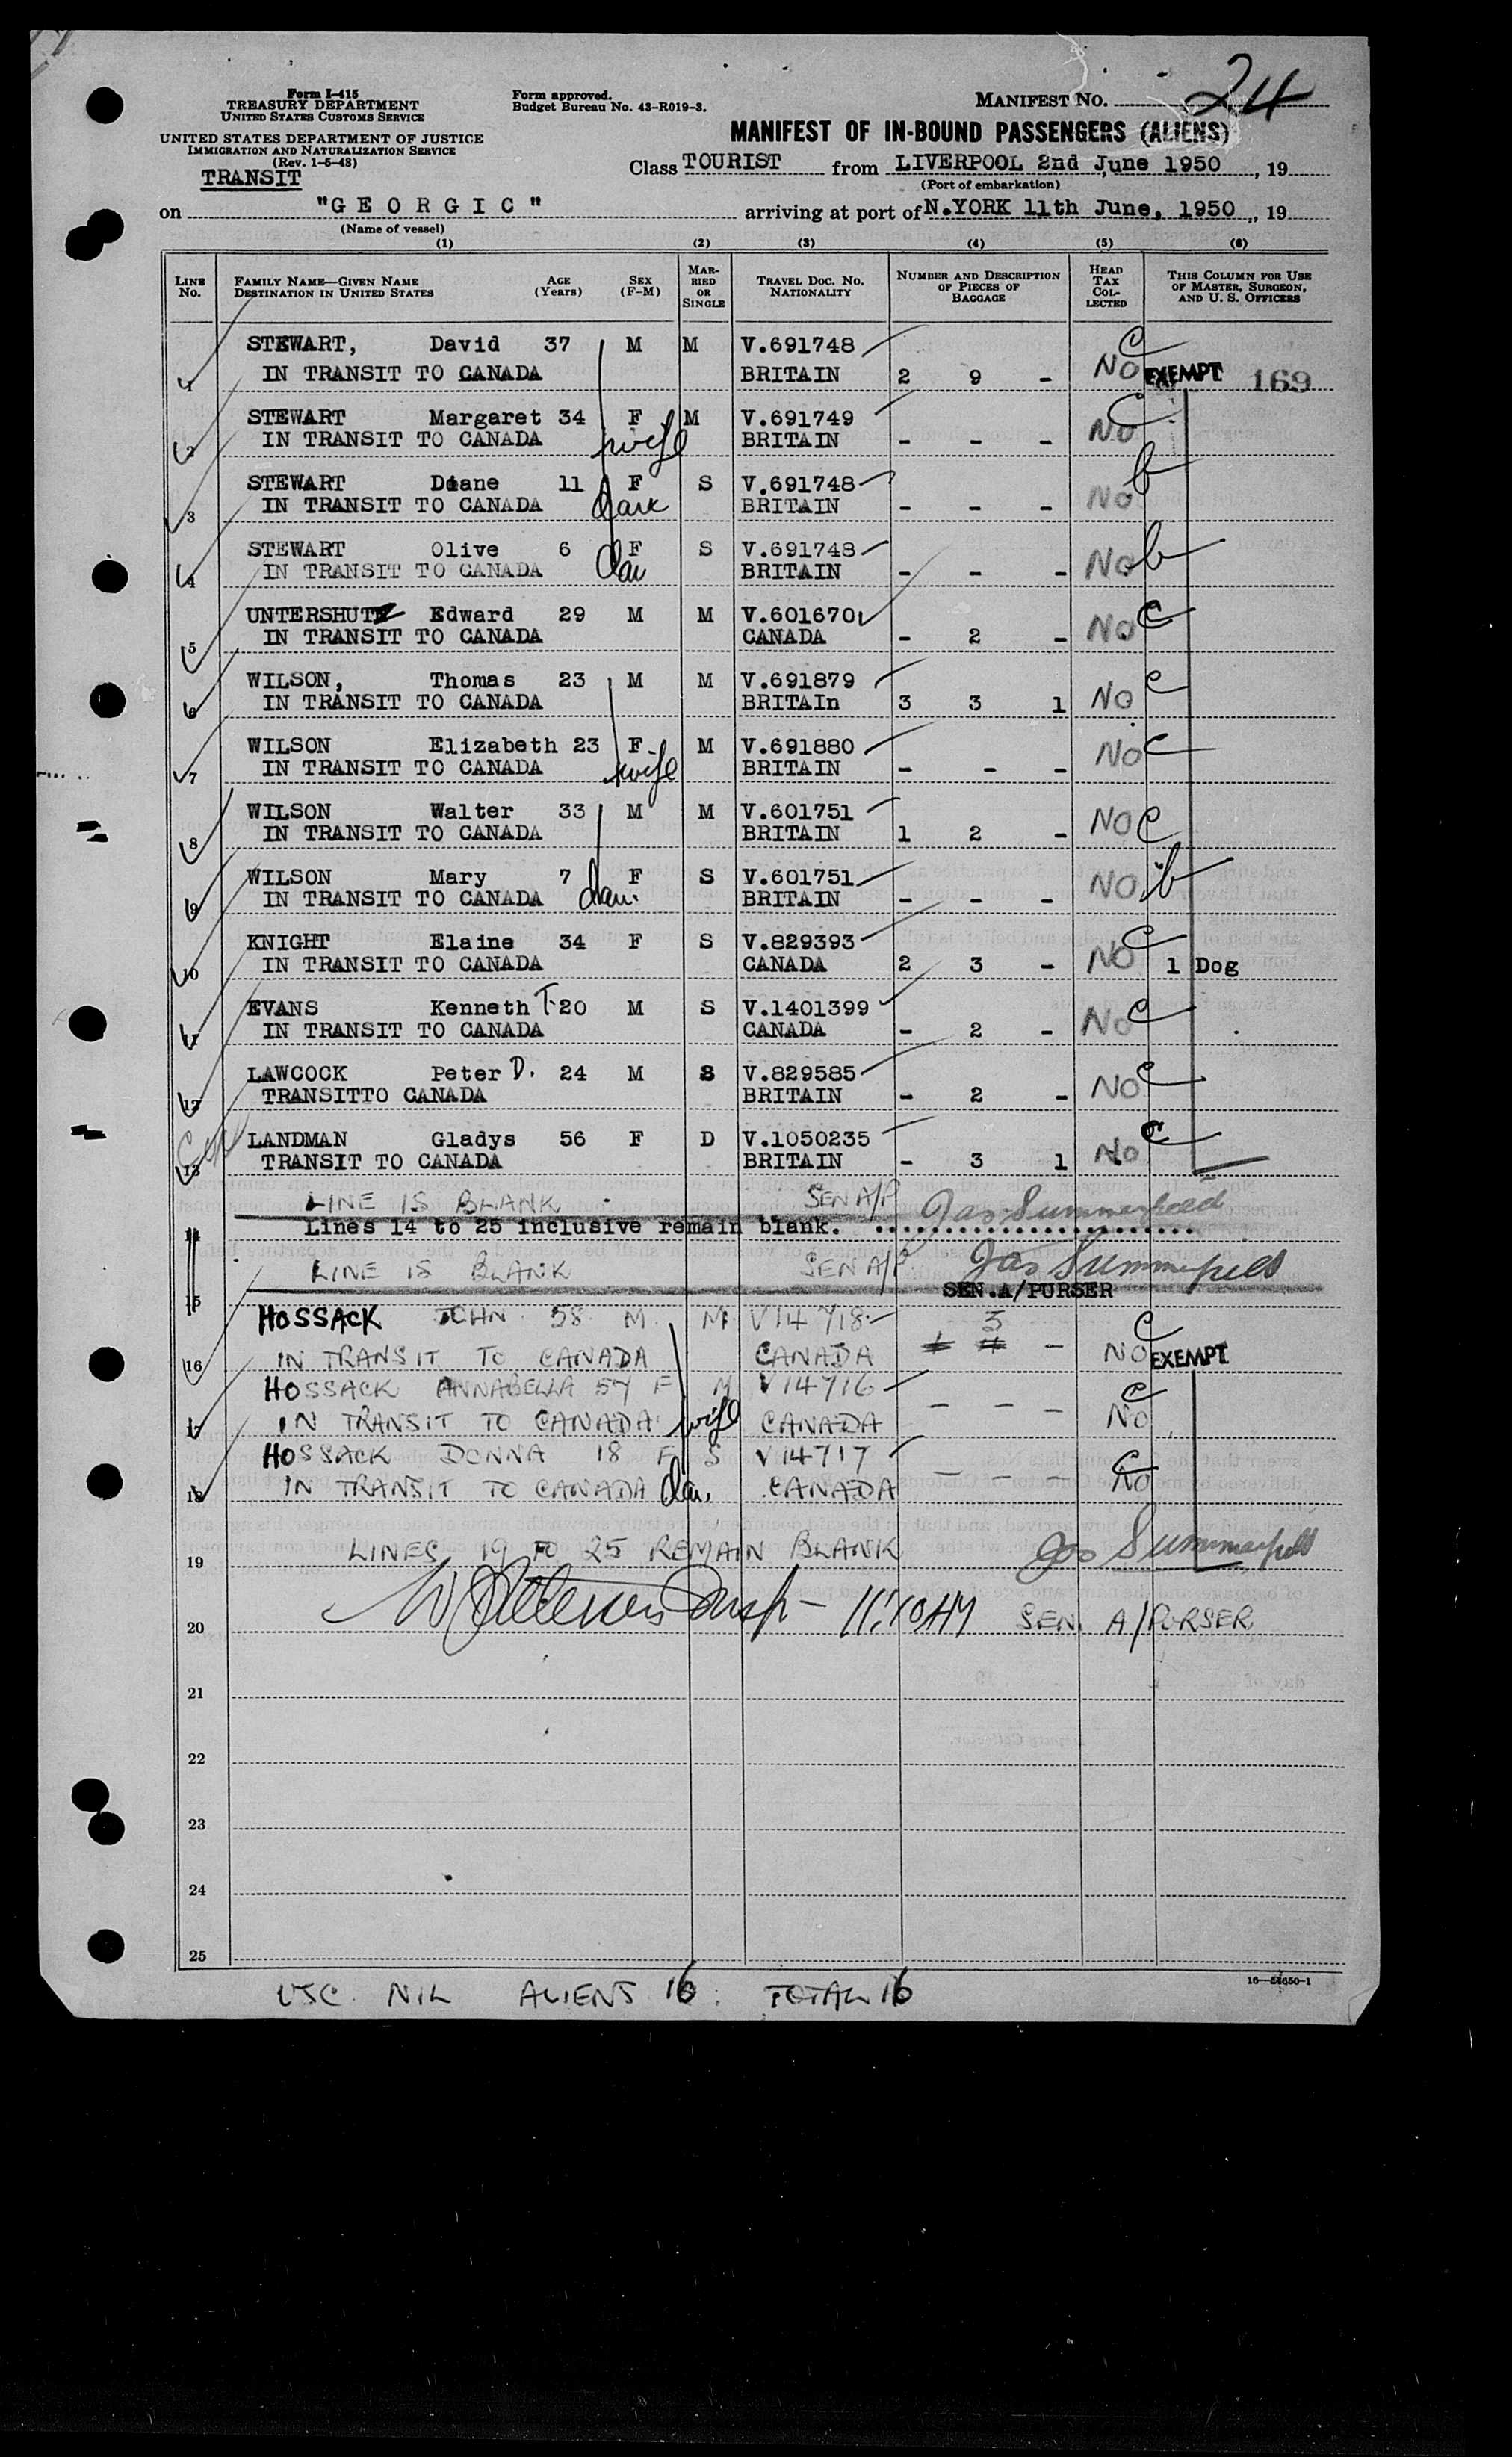 Form I-415
TREASURY DEPARTMENT
UNITED STATES CUSTOMS SERVICE
UNITED STATES DEPARTMENT OF JUSTICE
IMMIGRATION AND NATURALIZATION SERVICE
(Rev. 1-5-48)
TRANSIT
Form approved.
Budget Bureau No. 43-R019-3.
MANIFEST NO. 24
MANIFEST OF IN-BOUND PASSENGERS (ALIENS)
Class TOURIST from LIVERPOOL 2nd June 1950, 19
(Port of embarkation)
on "GEORGIC" arriving at port of N.YORK 11th June, 1950, 19
(Name of vessel)
(1) (2) (3) (4) (5) (6)
LINE No. FAMILY NAME—GIVEN NAME DESTINATION IN UNITED STATES AGE (Years) SEX (F-M) MARRIED OR SINGLE TRAVEL DOC. NO. NATIONALITY NUMBER AND DESCRIPTION OF PIECES OF BAGGAGE HEAD TAX COLLECTED THIS COLUMN FOR USE OF MASTER, SURGEON, AND U. S. OFFICERS
STEWART, David 37 M M V.691748 C
1 IN TRANSIT TO CANADA BRITAIN 2 9 - NO EXEMPT 169
STEWART Margaret 34 F M V.691749 C
2 IN TRANSIT TO CANADA wife BRITAIN - - - NO
STEWART Diane 11 F S V.691748 b
3 IN TRANSIT TO CANADA BRITAIN - - - NO
STEWART Olive 6 F S V.691748 b
4 IN TRANSIT TO CANADA dau BRITAIN - - - NO
UNTERSHUTZ Edward 29 M M V.601670 C
5 IN TRANSIT TO CANADA CANADA - 2 - NO
WILSON, Thomas 23 M M V.691879 C
6 IN TRANSIT TO CANADA BRITAIn 3 3 1 NO
WILSON Elizabeth 23 F M V.691880 C
7 IN TRANSIT TO CANADA wife BRITAIN - - - NO
WILSON Walter 33 M M V.601751 C
8 IN TRANSIT TO CANADA BRITAIN 1 2 - NO
WILSON Mary 7 F S V.601751 b
9 IN TRANSIT TO CANADA dau. BRITAIN - - - NO
KNIGHT Elaine 34 F S V.829393 C
10 IN TRANSIT TO CANADA CANADA 2 3 - NO 1 Dog
EVANS Kenneth T. 20 M S V.1401399 C
11 IN TRANSIT TO CANADA CANADA - 2 - NO
LAWCOCK Peter D. 24 M S V.829585 C
12 TRANSITTO CANADA BRITAIN - 2 - NO
LANDMAN Gladys 56 F D V.1050235 C
13 TRANSIT TO CANADA BRITAIN - 3 1 NO
LINE IS BLANK SEN A/P Jas Summerfield
14 Lines 14 to 25 inclusive remain blank.
LINE IS BLANK SEN A/P. Jas Summerfield
15 SEN.A/PURSER
HOSSACK JOHN 58 M M V14718 3 C
16 IN TRANSIT TO CANADA CANADA - NO EXEMPT
HOSSACK ANNABELLA 57 F M V14716 C
17 IN TRANSIT TO CANADA wife CANADA - - - NO
HOSSACK DONNA 18 F S V14717 C
18 IN TRANSIT TO CANADA dau. CANADA - - - NO
19 LINES 19 TO 25 REMAIN BLANK Jas Summerfield
20 SEN. A/PURSER
21
22
23
24
25
16—54650-1
USC NIL ALIENS 16. TOTAL 16